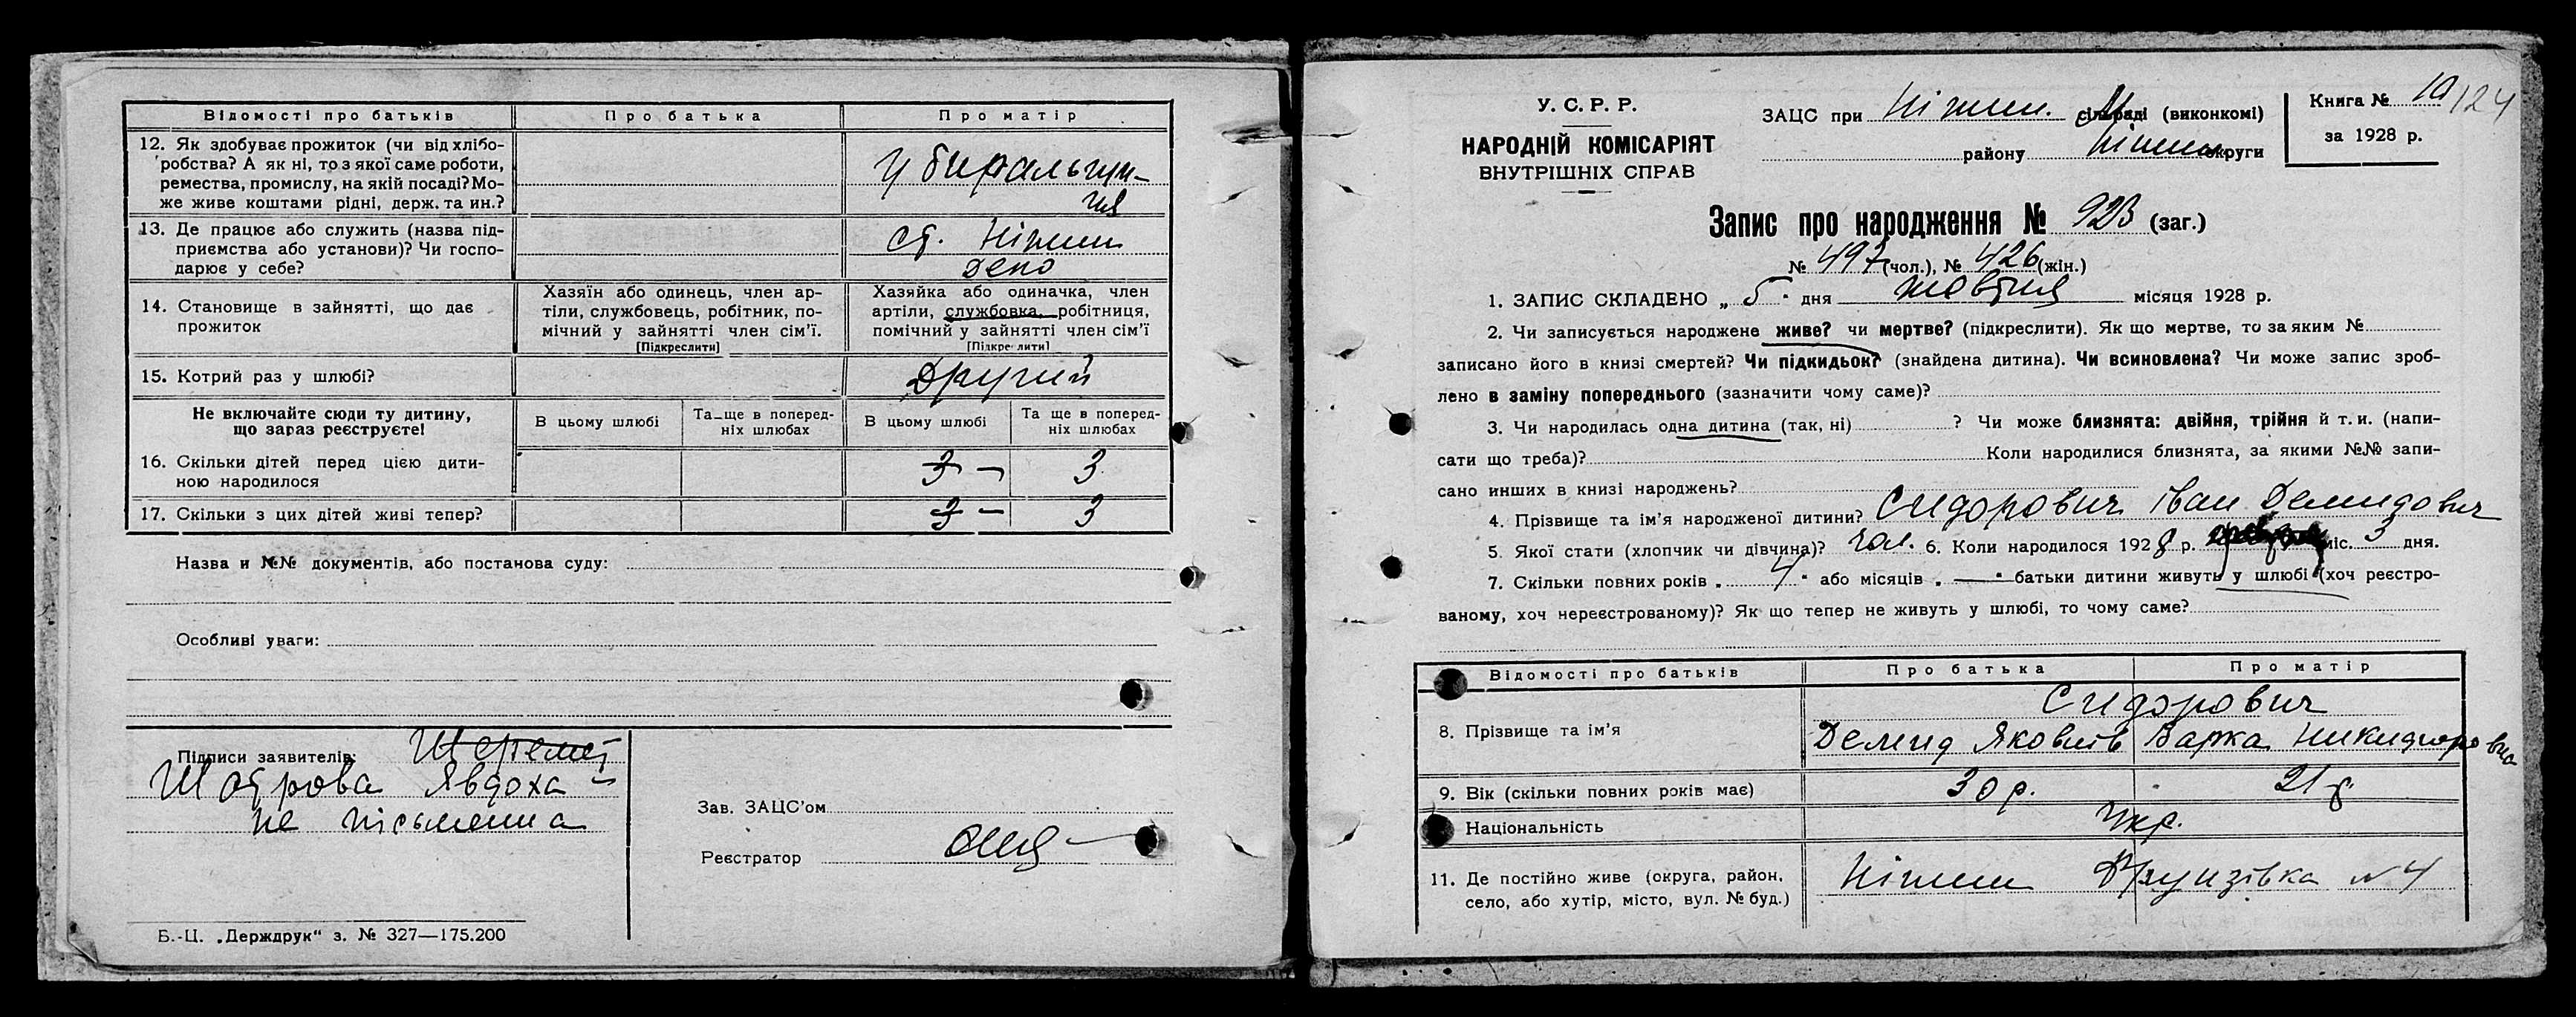 Відомості про батьків
Про батька
Про матір
12. Як здобуває прожиток (чи від хлібо-
робства? А як ні, то з якої саме роботи,
ремества, промислу, на якій посаді? Мо-
же живе коштами рідні, держ. та ин.?
13. Де працює або служить (назва під-
приємства або установи)? Чи госпо-
дарює у себе?
ст. Ніжин
Депо
14. Становище в зайнятті, що дає
прожиток
Хазяїн або одинець, член ар-
тіли, службовець, робітник, по-
мічний у зайнятті член сім'ї.
[Підкреслити]
Хазяйка або одиначка, член
артіли, службовка, робітниця,
помічний у зайнятті член сім'ї
[Підкреслити]
15. Котрий раз у шлюбі?
Другий
Не включайте сюди ту дитину,
що зараз реєструєте!
В цьому шлюбі
Та ще в поперед-
ніх шлюбах
В цьому шлюбі
Та ще в поперед-
ніх шлюбах
16. Скільки дітей перед цією дити-
ною народилося
3 — 3
17. Скільки з цих дітей живі тепер?
3 — 3
Назва и №№ документів, або постанова суду:
Особливі уваги:
Підписи заявителів: Шеремет
Шатрова Явдоха
не письменна
Зав. ЗАЦС'ом
Реєстратор
Б.-Ц. „Держдрук" з. № 327—175.200
У. С. Р. Р.
НАРОДНІЙ КОМІСАРІЯТ
ВНУТРІШНІХ СПРАВ
ЗАЦС при Ніжин. М сільраді (виконкомі)
району Ніжин округи
Книга № 10/124
за 1928 р.
Запис про народження № 923 (заг.)
№ 497 (чол.), № 426 (жін.)
1. ЗАПИС СКЛАДЕНО „ 5 " дня жовтня місяця 1928 р.
2. Чи записується народжене живе? чи мертве? (підкреслити). Як що мертве, то за яким №
записано його в книзі смертей? Чи підкидьок? (знайдена дитина). Чи всиновлена? Чи може запис зроб-
лено в заміну попереднього (зазначити чому саме)?
3. Чи народилась одна дитина (так, ні) ? Чи може близнята: двійня, трійня й т. и. (напи-
сати що треба)? Коли народилися близнята, за якими №№ запи-
сано инших в книзі народжень?
4. Прізвище та ім'я народженої дитини? Сидорович Іван Демидович
5. Якої стати (хлопчик чи дівчина)? чол. 6. Коли народилося 1928 р. міс. 3 дня.
7. Скільки повних років „ 4 " або місяців „ — " батьки дитини живуть у шлюбі (хоч реєстро-
ваному, хоч нереєстрованому)? Як що тепер не живуть у шлюбі, то чому саме?
Відомості про батьків
Про батька
Про матір
8. Прізвище та ім'я
Сидорович
Демид Яковлів
Варка Никифоровна
9. Вік (скільки повних років має)
30 р.
21 р.
Національність
Укр.
11. Де постійно живе (округа, район,
село, або хутір, місто, вул. № буд.)
Ніжин Фрунзівка №4